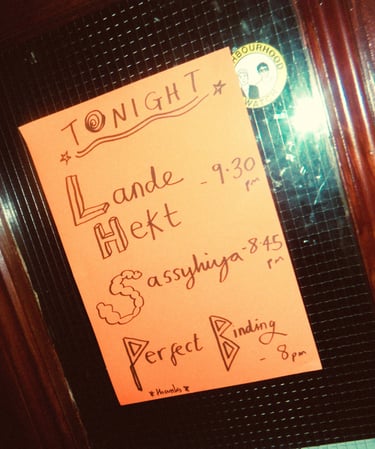 TONIGHT
Lande
Hekt - 9.30
pm
Sassyhiya - 8.45
pm
Perfect Binding
- 8pm
*thanks*
NEIGHBOURHOOD
WATCH